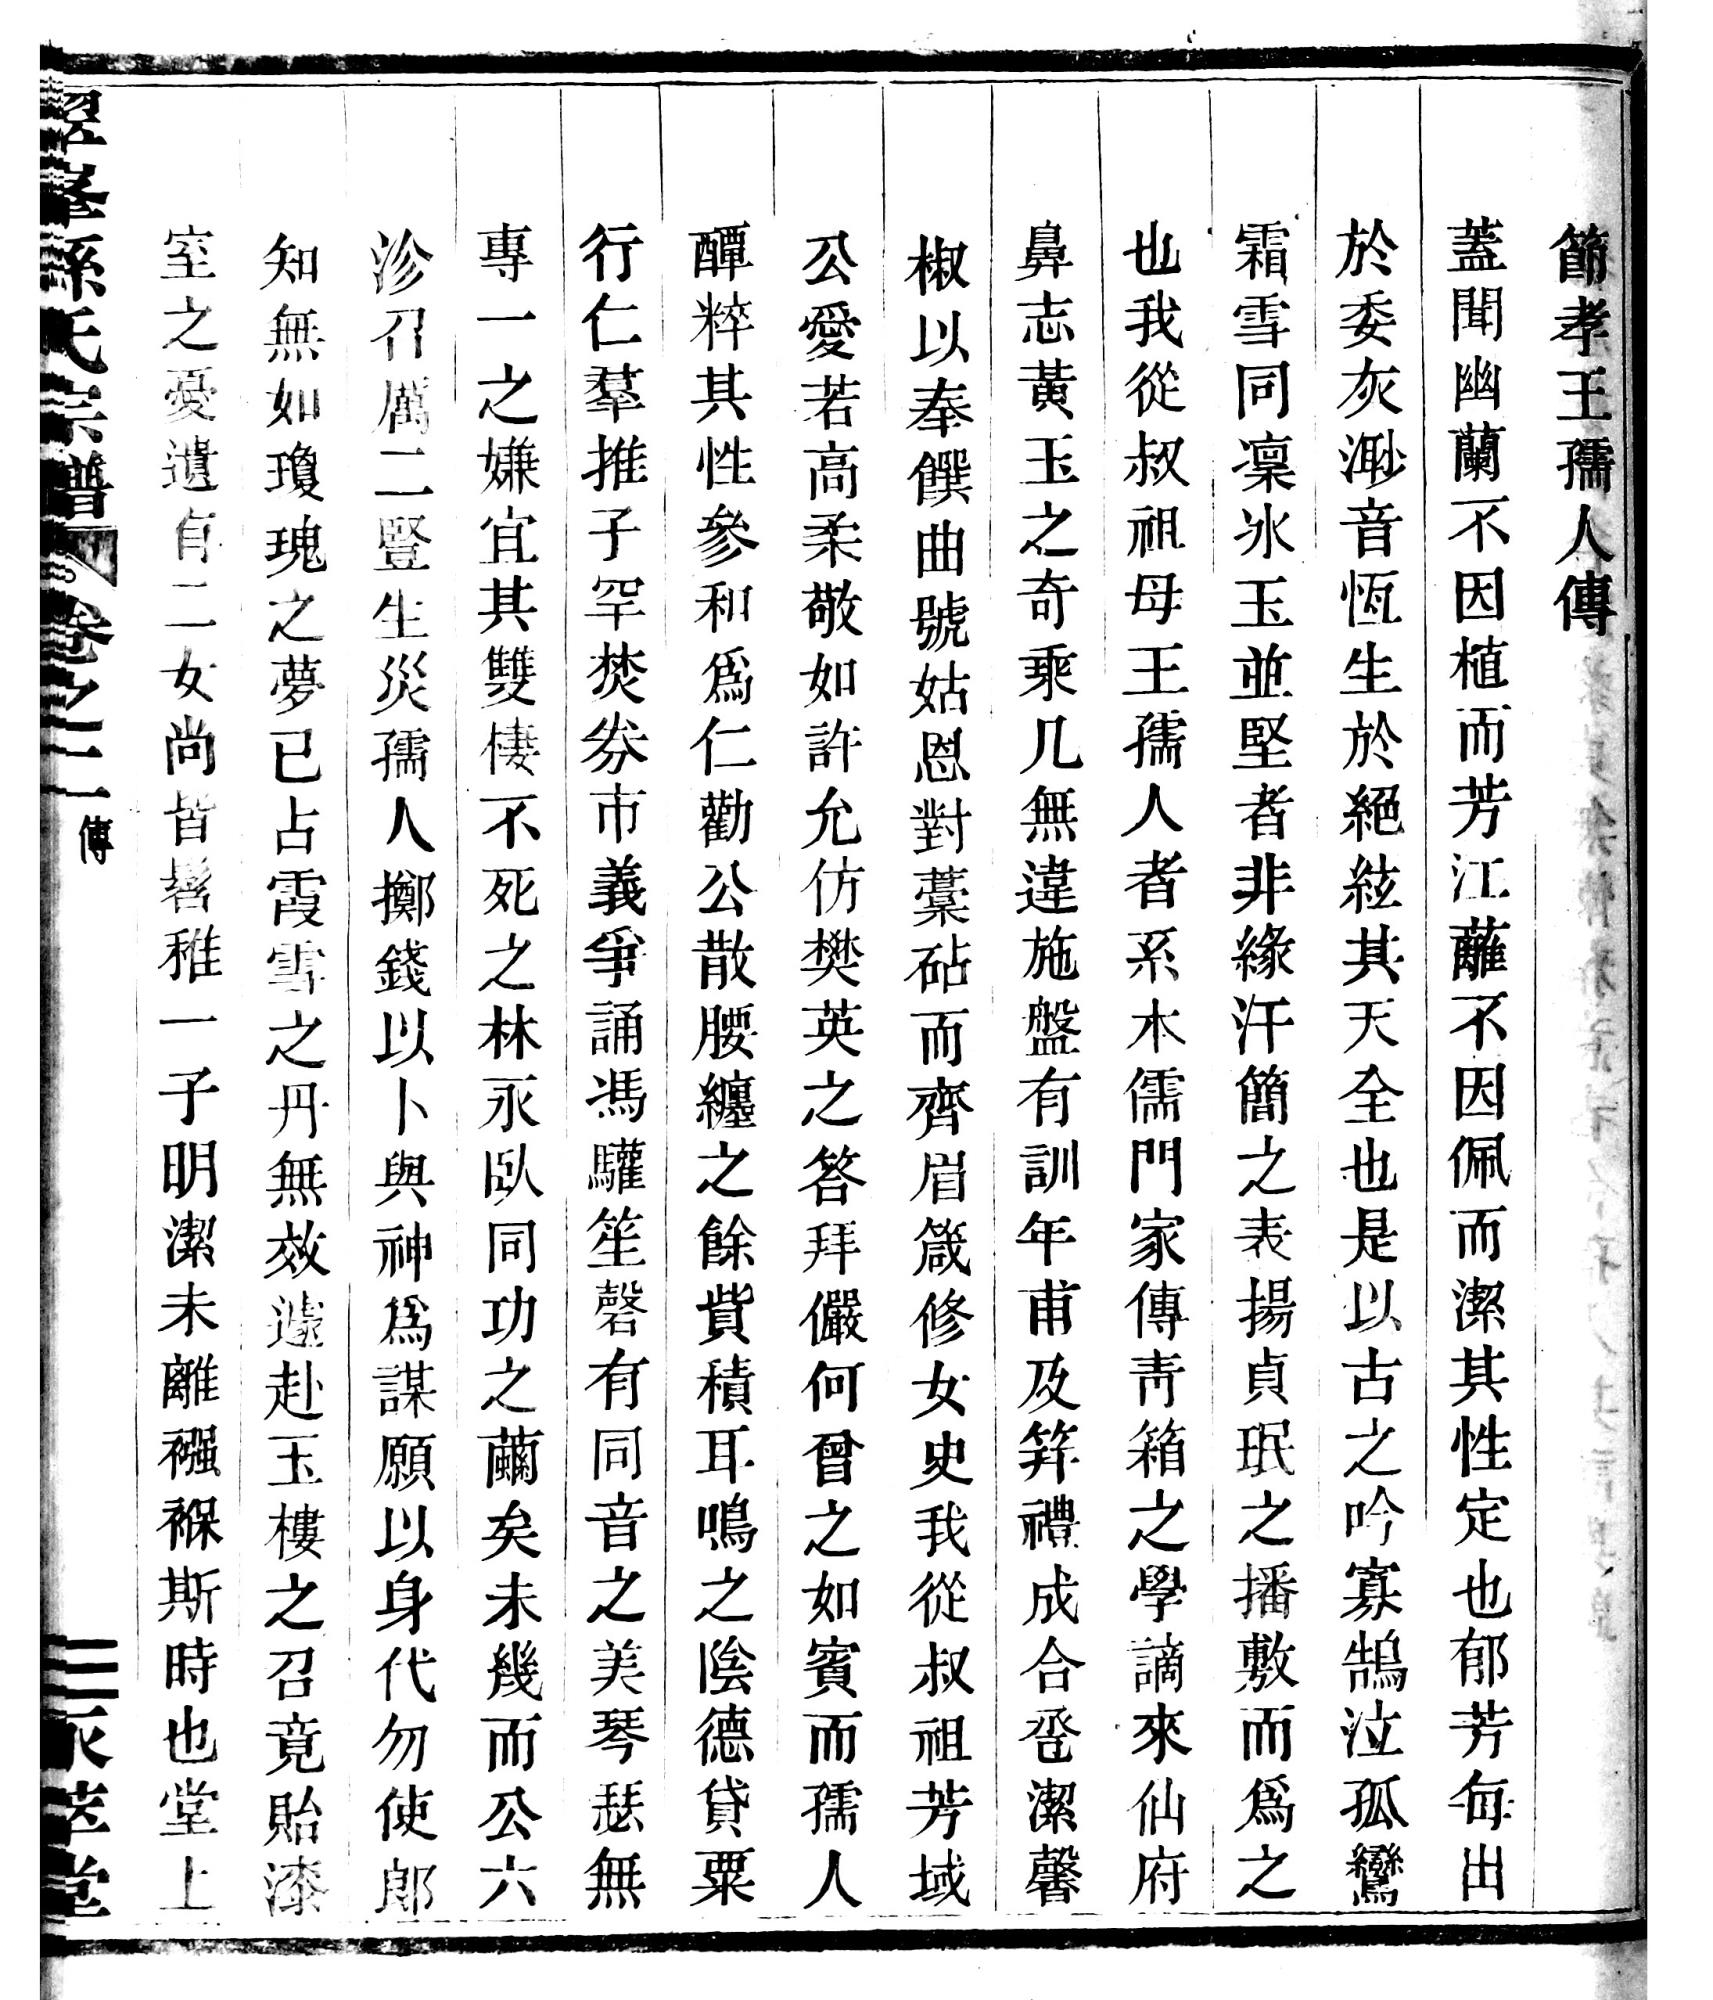 節孝王孺人傳
蓋聞幽蘭不因植而芳江蘺不因佩而潔其性定也郁芳每出
於委灰渺音恆生於絕絃其天全也是以古之吟寡鵠泣孤鸞
霜雪同凜氷玉並堅者非緣汗簡之表揚貞珉之播敷而爲之
也我從叔祖母王孺人者系木儒門家傳靑箱之學謫來仙府
鼻志黃玉之奇乘几無違施盤有訓年甫及笄禮成合卺潔馨
椒以奉饌曲號姑恩對藁砧而齊眉箴修女史我從叔祖芳域
公愛若高柔敬如許允仿樊英之答拜儼何曾之如賓而孺人
醰粹其性參和爲仁勸公散腰纏之餘貲積耳鳴之陰德貸粟
行仁羣推子罕焚券市義爭誦馮驩笙磬有同音之美琴瑟無
專一之嫌宜其雙棲不死之林永臥同功之繭矣未幾而公六
沴召厲二豎生災孺人擲錢以卜與神爲謀願以身代勿使郎
知無如瓊瑰之夢已占霞雪之丹無效遽赴玉樓之召竟貽漆
室之憂遺有二女尚皆髫稚一子明潔未離襁褓斯時也堂上
翠峯孫氏宗譜 卷之二 傳 三 永萃堂